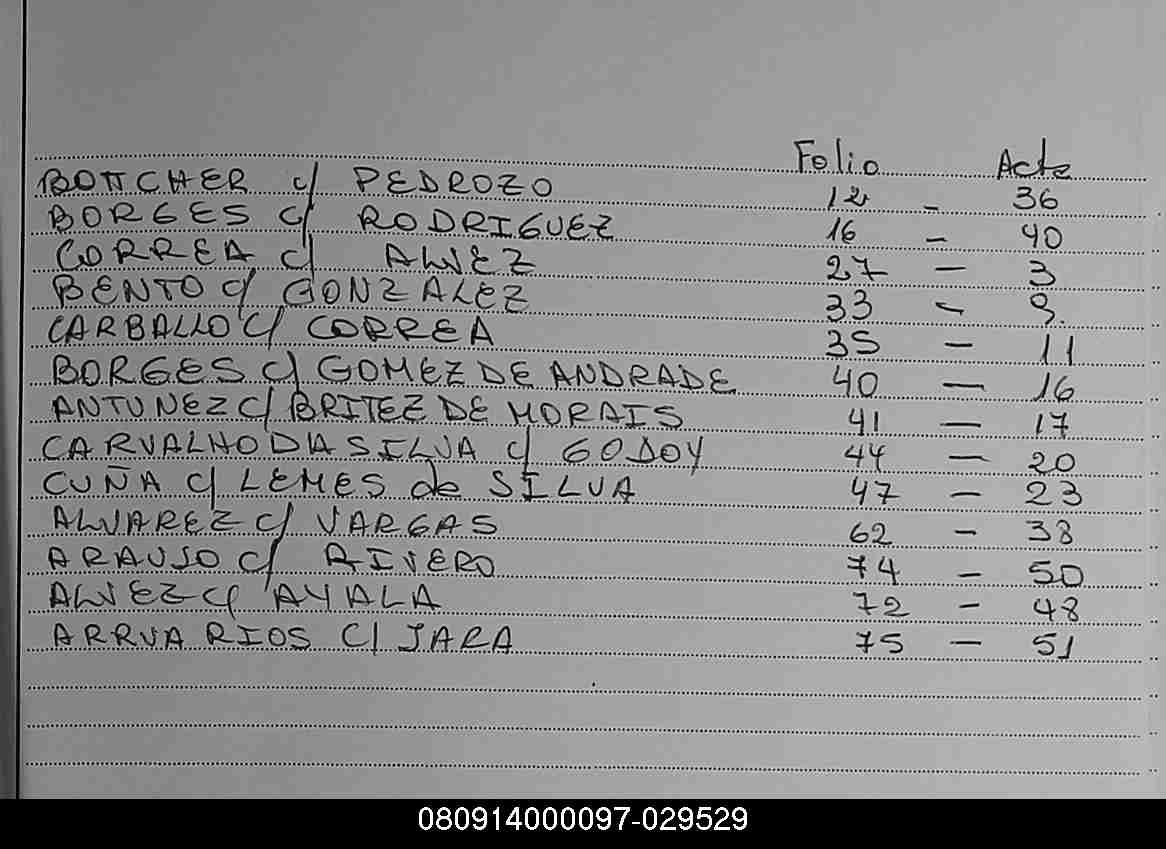 Folio Acta
BOTTCHER c/ PEDROZO 12 - 36
BORGES c/ RODRIGUEZ 16 - 40
CORREA c/ ALVEZ 27 - 3
BENTO c/ GONZALEZ 33 - 9
CARBALLO c/ CORREA 35 - 11
BORGES c/ GOMEZ DE ANDRADE 40 - 16
ANTUNEZ c/ BRITEZ DE MORAIS 41 - 17
CARVALHO DA SILVA c/ GODOY 44 - 20
CUÑA c/ LEMES de SILVA 47 - 23
ALVAREZ c/ VARGAS 62 - 38
ARAUJO c/ RIVERO 74 - 50
ALVEZ c/ AYALA 72 - 48
ARRUA RIOS C/ JARA 75 - 51
080914000097-029529